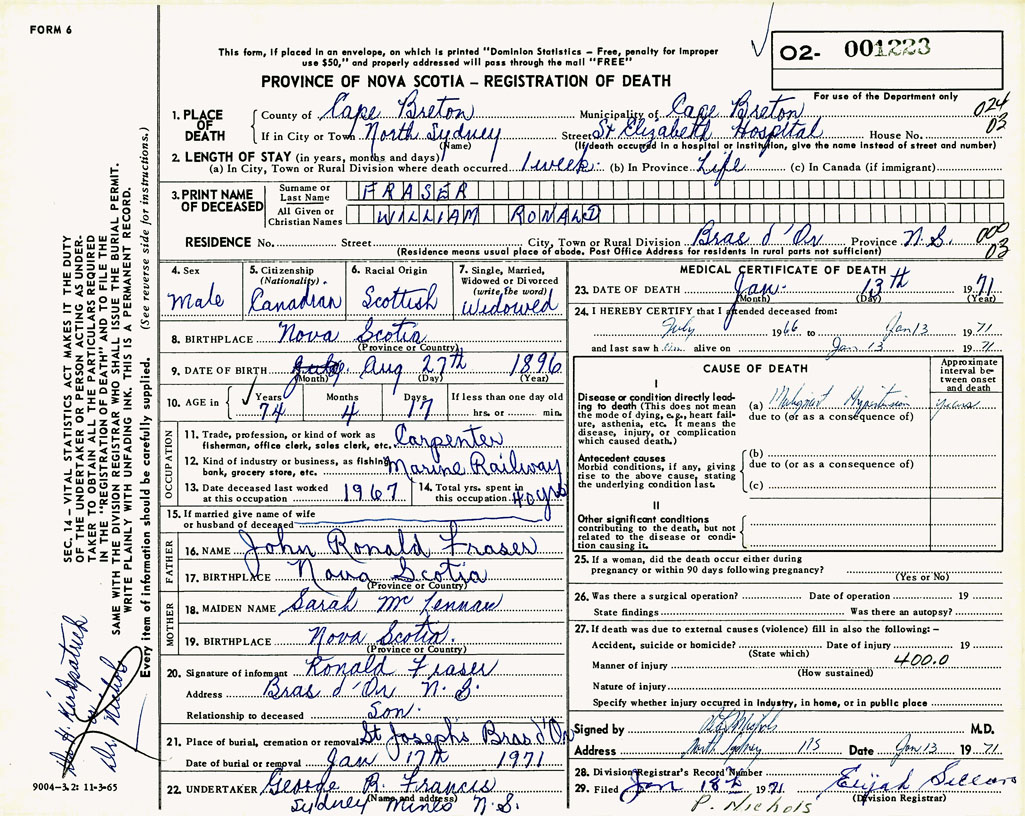 FORM 6
This form, if placed in an envelope, on which is printed "Dominion Statistics – Free, penalty for improper
use $50," and properly addressed will pass through the mail "FREE"
O2- 001223
PROVINCE OF NOVA SCOTIA – REGISTRATION OF DEATH
For use of the Department only
1. PLACE OF DEATH
County of Cape Breton Municipality of Cape Breton 024
If in City or Town North Sydney Street St Elizabeth Hospital House No. 03
(Name) (If death occurred in a hospital or institution, give the name instead of street and number)
2. LENGTH OF STAY (in years, months and days)
(a) In City, Town or Rural Division where death occurred 1 week (b) In Province Life (c) In Canada (if immigrant)
3. PRINT NAME OF DECEASED
Surname or Last Name FRASER
All Given or Christian Names WILLIAM RONALD
RESIDENCE No. Street City, Town or Rural Division Bras d'Or Province N.S. 000 03
(Residence means usual place of abode. Post Office Address for residents in rural parts not sufficient)
4. Sex Male
5. Citizenship (Nationality) Canadian
6. Racial Origin Scottish
7. Single, Married, Widowed or Divorced (write the word) Widowed
8. BIRTHPLACE Nova Scotia
(Province or Country)
9. DATE OF BIRTH Aug 27th 1896
(Month) (Day) (Year)
10. AGE in Years 74 Months 4 Days 17 If less than one day old
hrs. or min.
OCCUPATION
11. Trade, profession, or kind of work as
fisherman, office clerk, sales clerk, etc. Carpenter
12. Kind of industry or business, as fishing,
bank, grocery store, etc. Marine Railway
13. Date deceased last worked
at this occupation 1967
14. Total yrs. spent in
this occupation 40 yrs
15. If married give name of wife
or husband of deceased
FATHER
16. NAME John Ronald Fraser
17. BIRTHPLACE Nova Scotia
(Province or Country)
MOTHER
18. MAIDEN NAME Sarah McLennan
19. BIRTHPLACE Nova Scotia.
(Province or Country)
20. Signature of informant Ronald Fraser
Address Bras d'Or N.S.
Relationship to deceased Son.
21. Place of burial, cremation or removal St Josephs Bras d'Or
Date of burial or removal Jan 17th 1971
22. UNDERTAKER George R. Francis
(Name and address)
Sydney Mines N.S.
MEDICAL CERTIFICATE OF DEATH
23. DATE OF DEATH Jan. 13th 1971
(Month) (Day) (Year)
24. I HEREBY CERTIFY that I attended deceased from:
July 1966 to Jan 13 1971
and last saw him alive on Jan 13 1971
CAUSE OF DEATH
Approximate interval between onset and death
I
Disease or condition directly leading
to death (This does not mean
the mode of dying, e.g., heart failure,
asthenia, etc. It means the
disease, injury, or complication
which caused death.)
(a) Malignant Hypertension years
due to (or as a consequence of)
Antecedent causes
Morbid conditions, if any, giving
rise to the above cause, stating
the underlying condition last.
(b)
due to (or as a consequence of)
(c)
II
Other significant conditions
contributing to the death, but not
related to the disease or condition
causing it.
25. If a woman, did the death occur either during
pregnancy or within 90 days following pregnancy?
(Yes or No)
26. Was there a surgical operation? Date of operation 19
State findings Was there an autopsy?
27. If death was due to external causes (violence) fill in also the following: –
Accident, suicide or homicide? Date of injury 19
(State which)
Manner of injury 400.0
(How sustained)
Nature of injury
Specify whether injury occurred in industry, in home, or in public place
Signed by Nichols M.D.
Address North Sydney NS Date Jan 13 1971
28. Division Registrar's Record Number
29. Filed Jan 18th 1971 Elijah
(Division Registrar)
P. Nichols
SEC. 14 – VITAL STATISTICS ACT MAKES IT THE DUTY
OF THE UNDERTAKER OR PERSON ACTING AS UNDER-
TAKER TO OBTAIN ALL THE PARTICULARS REQUIRED
IN THE "REGISTRATION OF DEATH" AND TO FILE THE
SAME WITH THE DIVISION REGISTRAR WHO SHALL ISSUE THE BURIAL PERMIT.
WRITE PLAINLY WITH UNFADING INK. THIS IS A PERMANENT RECORD.
Every item of information should be carefully supplied. (See reverse side for instructions.)
Kirkpatrick
Dr Nichols
9004-3.2: 11-3-65